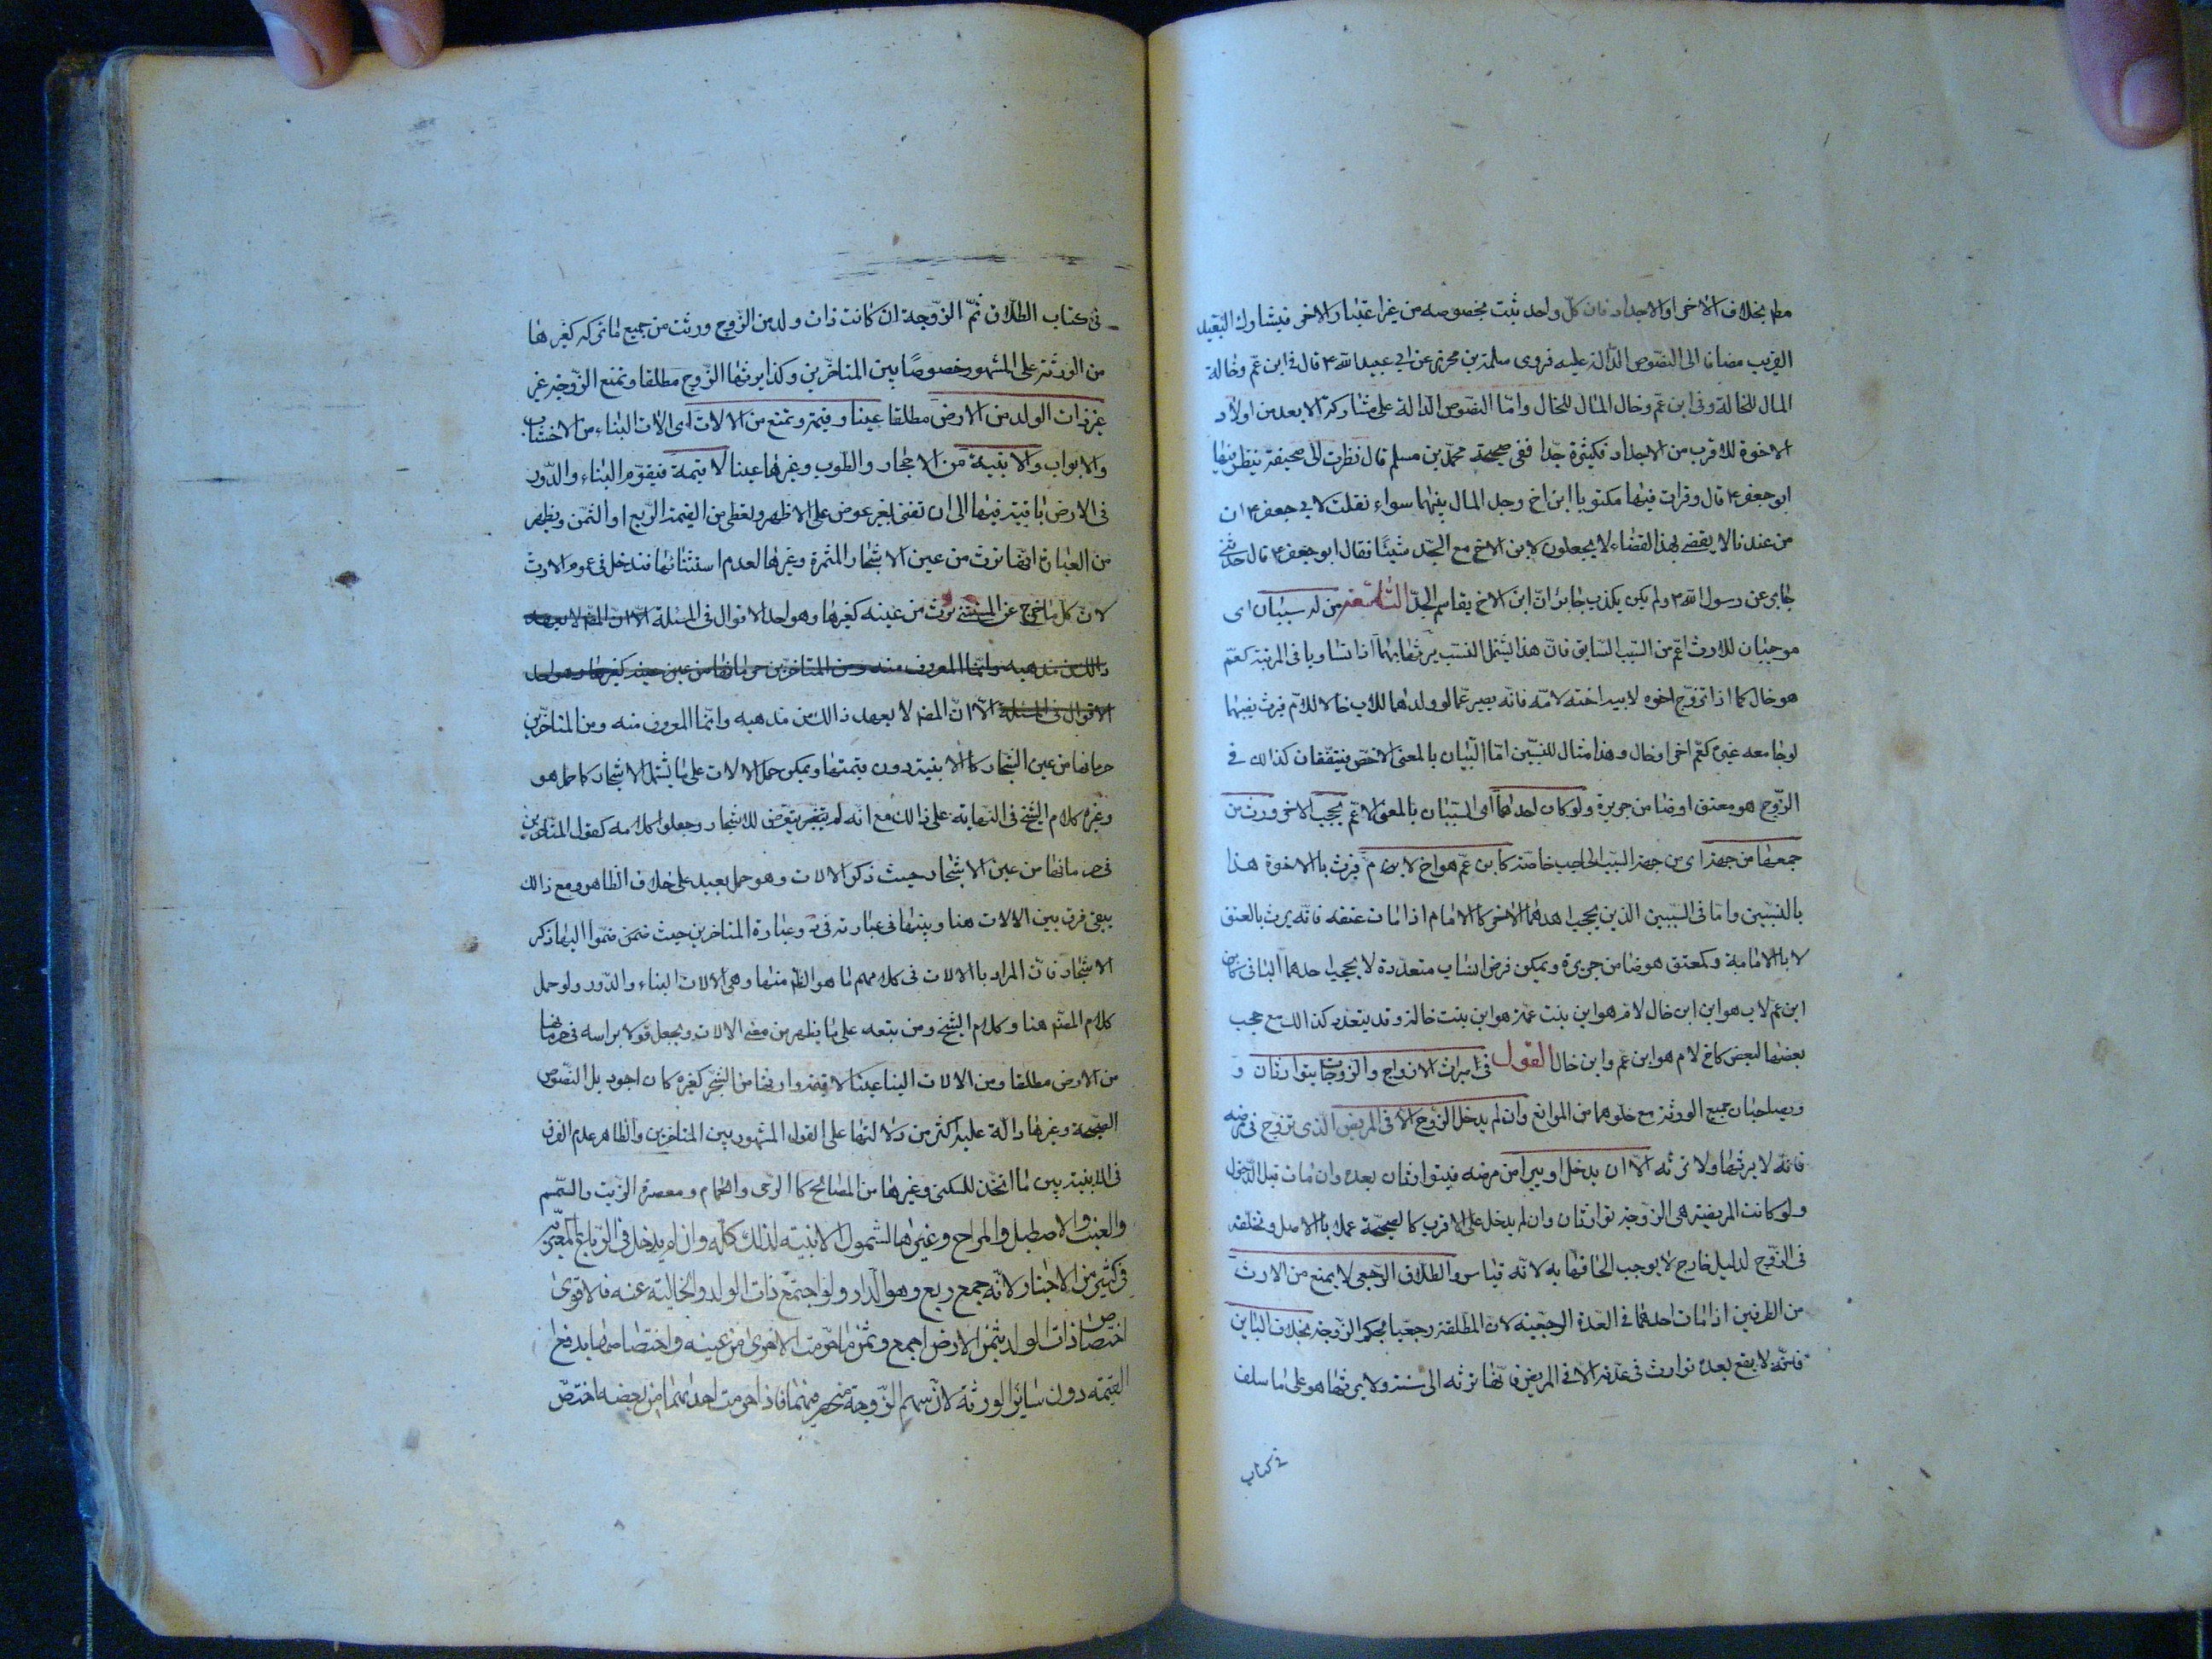 مطر بخلاف الاخر او الاجداد فان كل واحد ثبت بخصوصه من غير اعتبار الاخر فيشارك البعيد
القريب مضافا الى النصوص الدالة عليه فروى سلمة بن محرز عن ابي عبيد الله ع قال في ابن عم وخالة
المال للخالة وفي ابن عم وخال المال للخال واما النصوص الدالة على مشاركة الابعد من اولاد
الاخوة للاقرب من الاجداد فكثيرة جدا ففي صحيحة محمد بن مسلم قال نظرت الى صحيفة ينظر فيها
ابو جعفر ع قال وقرات فيها مكتوبا ابن اخ وجد المال بينهما سواء فقلت لابي جعفر ع ان
من عندنا لا يقضي بهذا القضاء لا يجعلون لابن الاخ مع الجد شيئا فقال ابو جعفر ع قال حدثني
جابر عن رسول الله ص ولم يكن يكذب جابر ان ابن الاخ يقاسم الجد التاسعة من له سببان اى
موجبان للارث اعم من السبب السابق فان هذا يشمل النسب يرث بهما اذا تساويا في المرتبة كعم
هو خال كما اذا تزوج اخوه لابيه اخته لامه فانه يصير عما لولدهما للاب خالا للام فيرث نصيبهما
لو جامعه غيره كعم اخر او خال وهذا مثال للنسبين اما السببان بالمعنى الاخص فيتفقان كذالك في
الزوج هو معتق او ضامن جريرة ولو كان احدهما اى السببان بالمعنى الاعم يحجب الاخر ورث من
جمعهما من جهته اى من جهة السبب الحاجب خاصة كابن عم هو اخ لام فيرث بالاخوة هذا
بالنسبين واما في السببين الذين يحجب احدهما الاخر كالامام اذا مات عتقه فانه يرث بالعتق
لا بالامامة وكمعتق هو ضامن جريرة ويمكن فرض انساب متعددة لا يحجب احدهما الباقي كابن
ابن عم لاب هو ابن ابن خال لام هو ابن بنت عمة هو ابن بنت خالة وقد يتعدد كذالك مع حجب
بعضها لبعض كاخ لام هو ابن عم وابن خال القول في ميراث الازواج والزوجات يتوارثان و
ويصاحبان جميع الورثة مع خلوهما من الموانع وان لم يدخل الزوج الا في المريض الذى تزوج في مرضه
فانه لا يرثها ولا ترثه الا ان يدخل او يبرا من مرضه فيتوارثان بعده وان مات قبل الدخول
ولو كانت المريضة هى الزوجة توارثان وان لم يدخل على الاقرب كالصحيحة عملا بالاصل وتخلفه
في الزوج لدليل خارج لا يوجب الحاقها به لانه قياس والطلاق الرجعي لا يمنع من الارث
من الطرفين اذا مات احدهما في العدة الرجعية لان المطلقة رجعيا بحكم الزوجة بخلاف الباين
فانه لا يقع بعده توارث في عدته الا في المريض فانها ترثه الى سنة ولا يرثها هو على ما سلف
في كتاب
في كتاب الطلاق ثم الزوجة ان كانت ذات ولد من الزوج ورثت من جميع ما تركه كغيرها
من الورثة على المشهور خصوصا بين المتاخرين وكذا يرثها الزوج مطلقا وتمنع الزوجة غير
غير ذات الولد من الارض مطلقا عينا وقيمة وتمنع من الالات اى الات البناء من الاخشاب
والابواب والابنية من الاحجار والطوب وغيرها عينا لا قيمة فيقوم البناء والدور
في الارض باقية فيها الى ان تفنى بغير عوض على الاظهر وتعطى من القيمة الربع او الثمن ويظهر
من العبارة انها ترث من عين الاشجار المثمرة وغيرها لعدم استثنائها فتدخل في عموم الارث
لان كل ما خرج عن المستثنى ترث من عينه كغيرها وهو احد الاقوال في المسئلة الا ان المص لا يعهد
ذالك من مذهبه وانما المعروف منه ومن المتاخرين حرمانها من عين
الاقوال في المسئلة الا ان المص لا يعهد ذالك من مذهبه وانما المعروف منه ومن المتاخرين
حرمانها من عين الشجار كالابنية دون قيمتها ويمكن حمل الالات على ما يشمل الاشجار كما حمل هو
وغيره كلام الشيخ في النهاية على ذالك مع انه لم يتعرض للاشجار وجعلوا كلامه كقول المتاخرين
في حرمانها من عين الاشجار حيث ذكر الالات وهو حمل بعيد على خلاف الظاهر ومع ذالك
يبقى فرق بين الالات هنا وبينها في عبارته في وعبارة المتاخرين حيث ضموا اليها ذكر
الاشجار فان المراد بالالات في كلامهم ما هو الظ منها وهى الات البناء والدور ولو حمل
كلام المص هنا وكلام الشيخ ومن تبعه على ما يظهر من معنى الالات ويجعل قولا براسه في حرمانها
من الارض مطلقا ومن الالات البناء عينا لا قيمة وارثها من الشجر كغيره كان اجود بل النصوص
الصحيحة وغيرها دالة عليه اكثر من دلالتها على القول المشهور بين المتاخرين والظاهر عدم الفرق
في الابنية بين ما اتخذ للسكنى وغيرها من المصالح كالرحى والحمام ومعصرة الزيت والسمسم
والعنب والاصطبل والمراح وغيرها لشمول الابنية لذلك كله وان لم يدخل في الرباع المعبر
في كثير من الاخبار لانه جمع ربع وهو الدار ولو اجتمع ذات الولد والخالية عنه فالاقوى
اختصاص ذات الولد بثمن الارض اجمع وثمن ما حرمت الاخرى من عينه واختصاصها بدفع
القيمة دون سائر الورثة لان سهم الزوجة منحصر فيهما فاذا حرمت احداهما من بعضه اختص